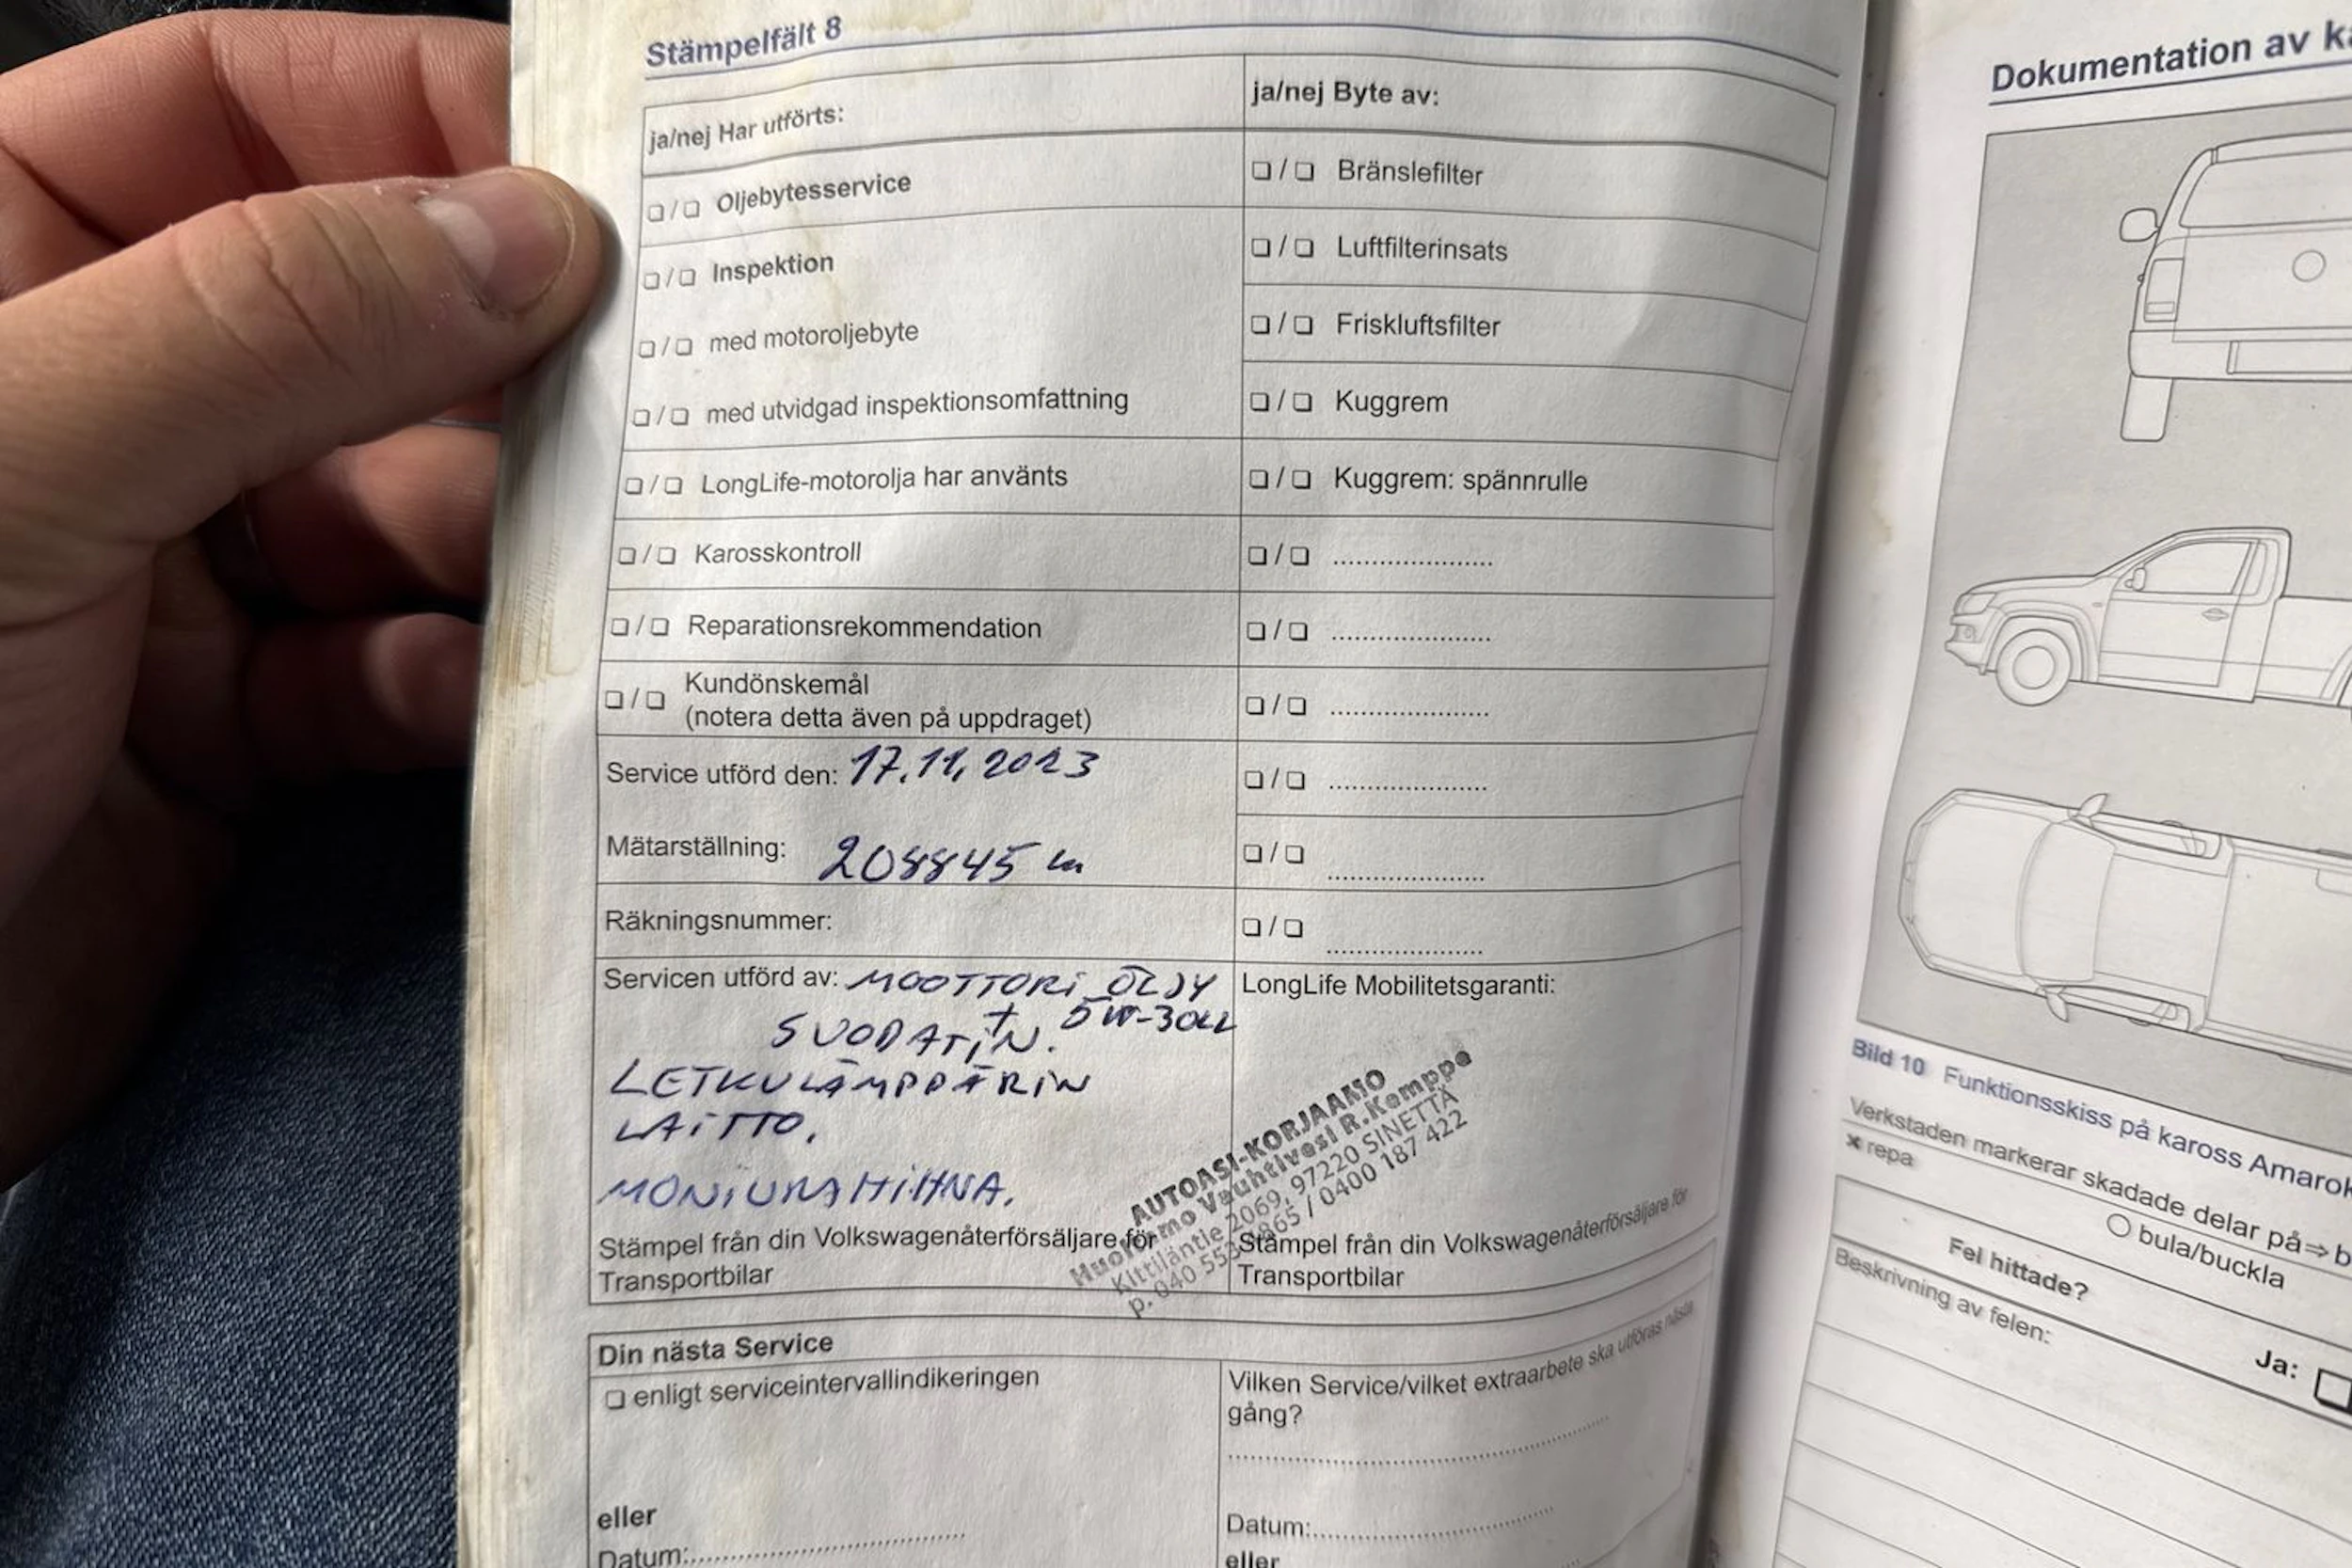 Stämpelfält 8
ja/nej Har utförts:
❏ / ❏ Oljebytesservice
❏ / ❏ Inspektion
❏ / ❏ med motoroljebyte
❏ / ❏ med utvidgad inspektionsomfattning
❏ / ❏ LongLife-motorolja har använts
❏ / ❏ Karosskontroll
❏ / ❏ Reparationsrekommendation
❏ / ❏ Kundönskemål
(notera detta även på uppdraget)
Service utförd den: 17.11.2023
Mätarställning: 208845
Räkningsnummer:
Servicen utförd av: MOOTTORI ÖLJY
+ 5W-30LL
SUODATIN.
LETKULÄMPPÄRIN
LAITTO.
MONIURAHIHNA.
Stämpel från din Volkswagenåterförsäljare för
Transportbilar
ja/nej Byte av:
❏ / ❏ Bränslefilter
❏ / ❏ Luftfilterinsats
❏ / ❏ Friskluftsfilter
❏ / ❏ Kuggrem
❏ / ❏ Kuggrem: spännrulle
❏ / ❏ ......................
❏ / ❏ ......................
❏ / ❏ ......................
❏ / ❏ ......................
❏ / ❏ ......................
❏ / ❏ ......................
LongLife Mobilitetsgaranti:
AUTOASI-KORJAAMO
Huoltamo Vauhtivesi R.Kemppe
Kittiläntie 2069, 97220 SINETTÄ
p. 040 / 0400 187 422
Stämpel från din Volkswagenåterförsäljare för
Transportbilar
Din nästa Service
❏ enligt serviceintervallindikeringen
eller
Datum:
Vilken Service/vilket extraarbete ska utföras nästa
gång?
Datum:
eller
Dokumentation av
Bild 10 Funktionsskiss på kaross Amarok
Verkstaden markerar skadade delar på⇒
✖ repa
○ bula/buckla
Fel hittade?
Ja: ❏
Beskrivning av felen: